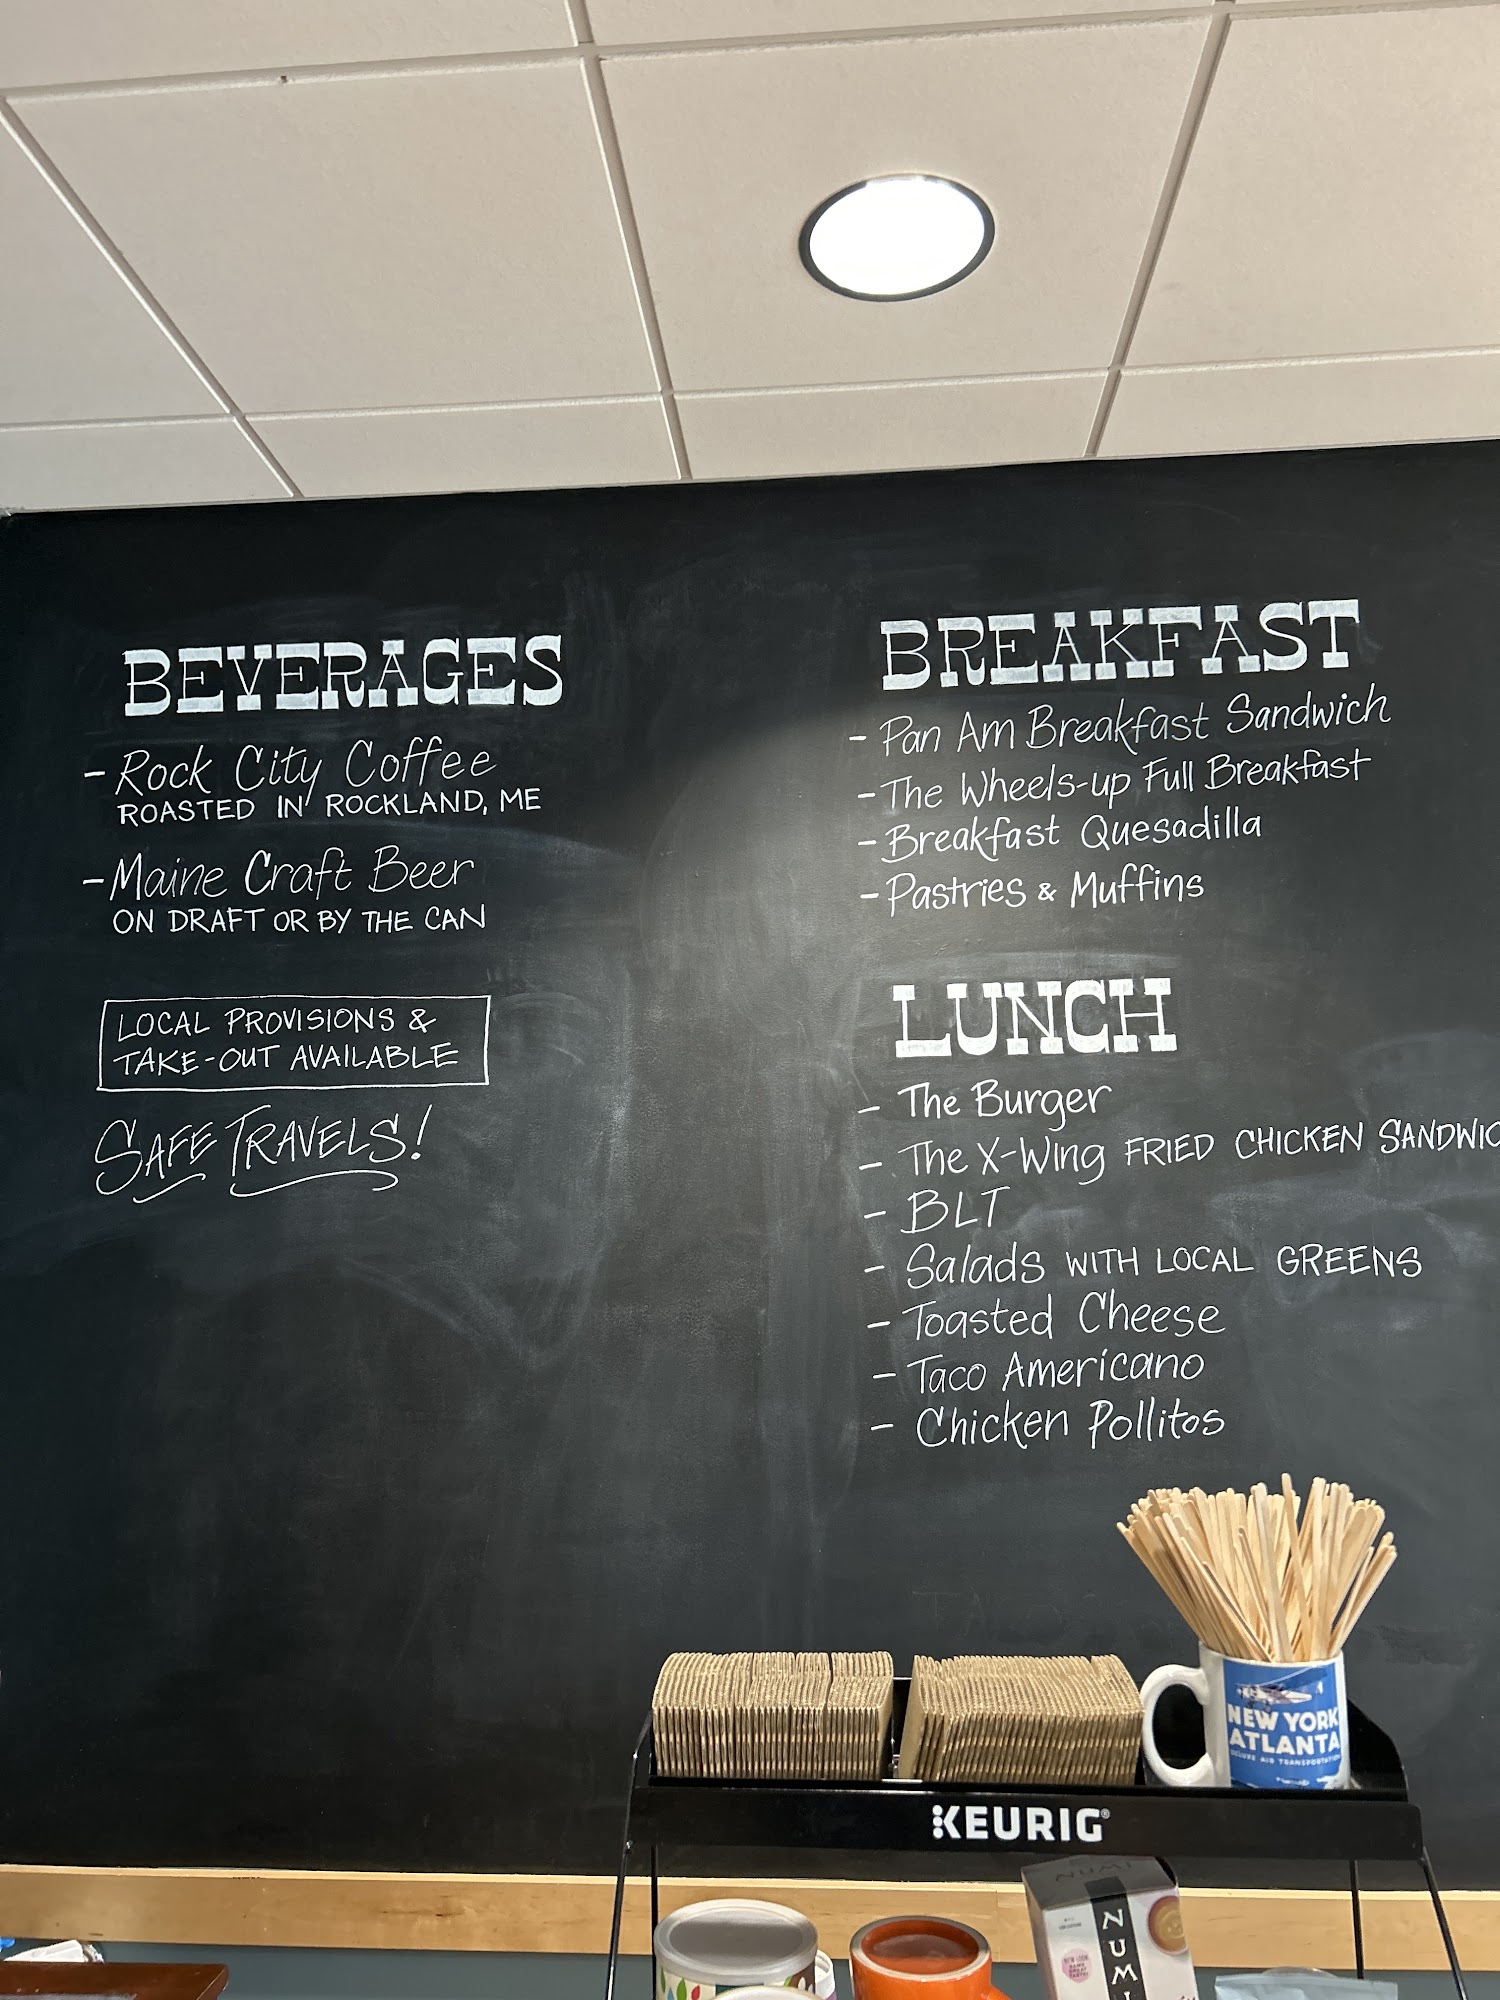 BEVERAGES
- Rock City Coffee
ROASTED IN ROCKLAND, ME
- Maine Craft Beer
ON DRAFT OR BY THE CAN
LOCAL PROVISIONS &
TAKE-OUT AVAILABLE
SAFE TRAVELS!
BREAKFAST
- Pan Am Breakfast Sandwich
- The Wheels-up Full Breakfast
- Breakfast Quesadilla
- Pastries & Muffins
LUNCH
- The Burger
- The X-Wing FRIED CHICKEN SANDWIC
- BLT
- Salads WITH LOCAL GREENS
- Toasted Cheese
- Taco Americano
- Chicken Pollitos
NEW YORK
ATLANTA
DELUXE AIR TRANSPORTATION
KEURIG®
NUMI
NUMI